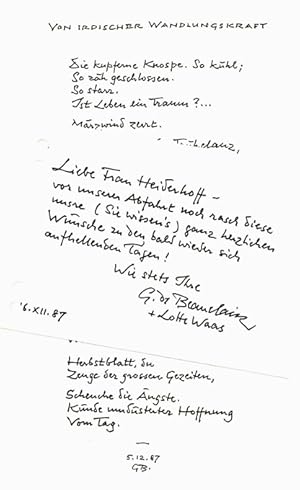 VON IRDISCHER WANDLUNGSKRAFT
Die kupferne Knospe. So kühl;
So zäh geschlossen.
So starr.
Ist Leben ein Traum?...
Märzwind zerrt.
Liebe Frau Heiderhoff –
vor unserer Abfahrt noch rasch diese
unsre (Sie wissen's) ganz herzlichen
Wünsche zu den bald wieder sich
aufhellenden Tagen!
Wie stets Ihre
G. de Beauclair
+ Lotte Waas
6.XII.87
Herbstblatt, du
Zeuge der grossen Gezeiten,
Scheuche die Ängste.
Künde umdüsterter Hoffnung
Vom Tag.
5.12.87
GB.